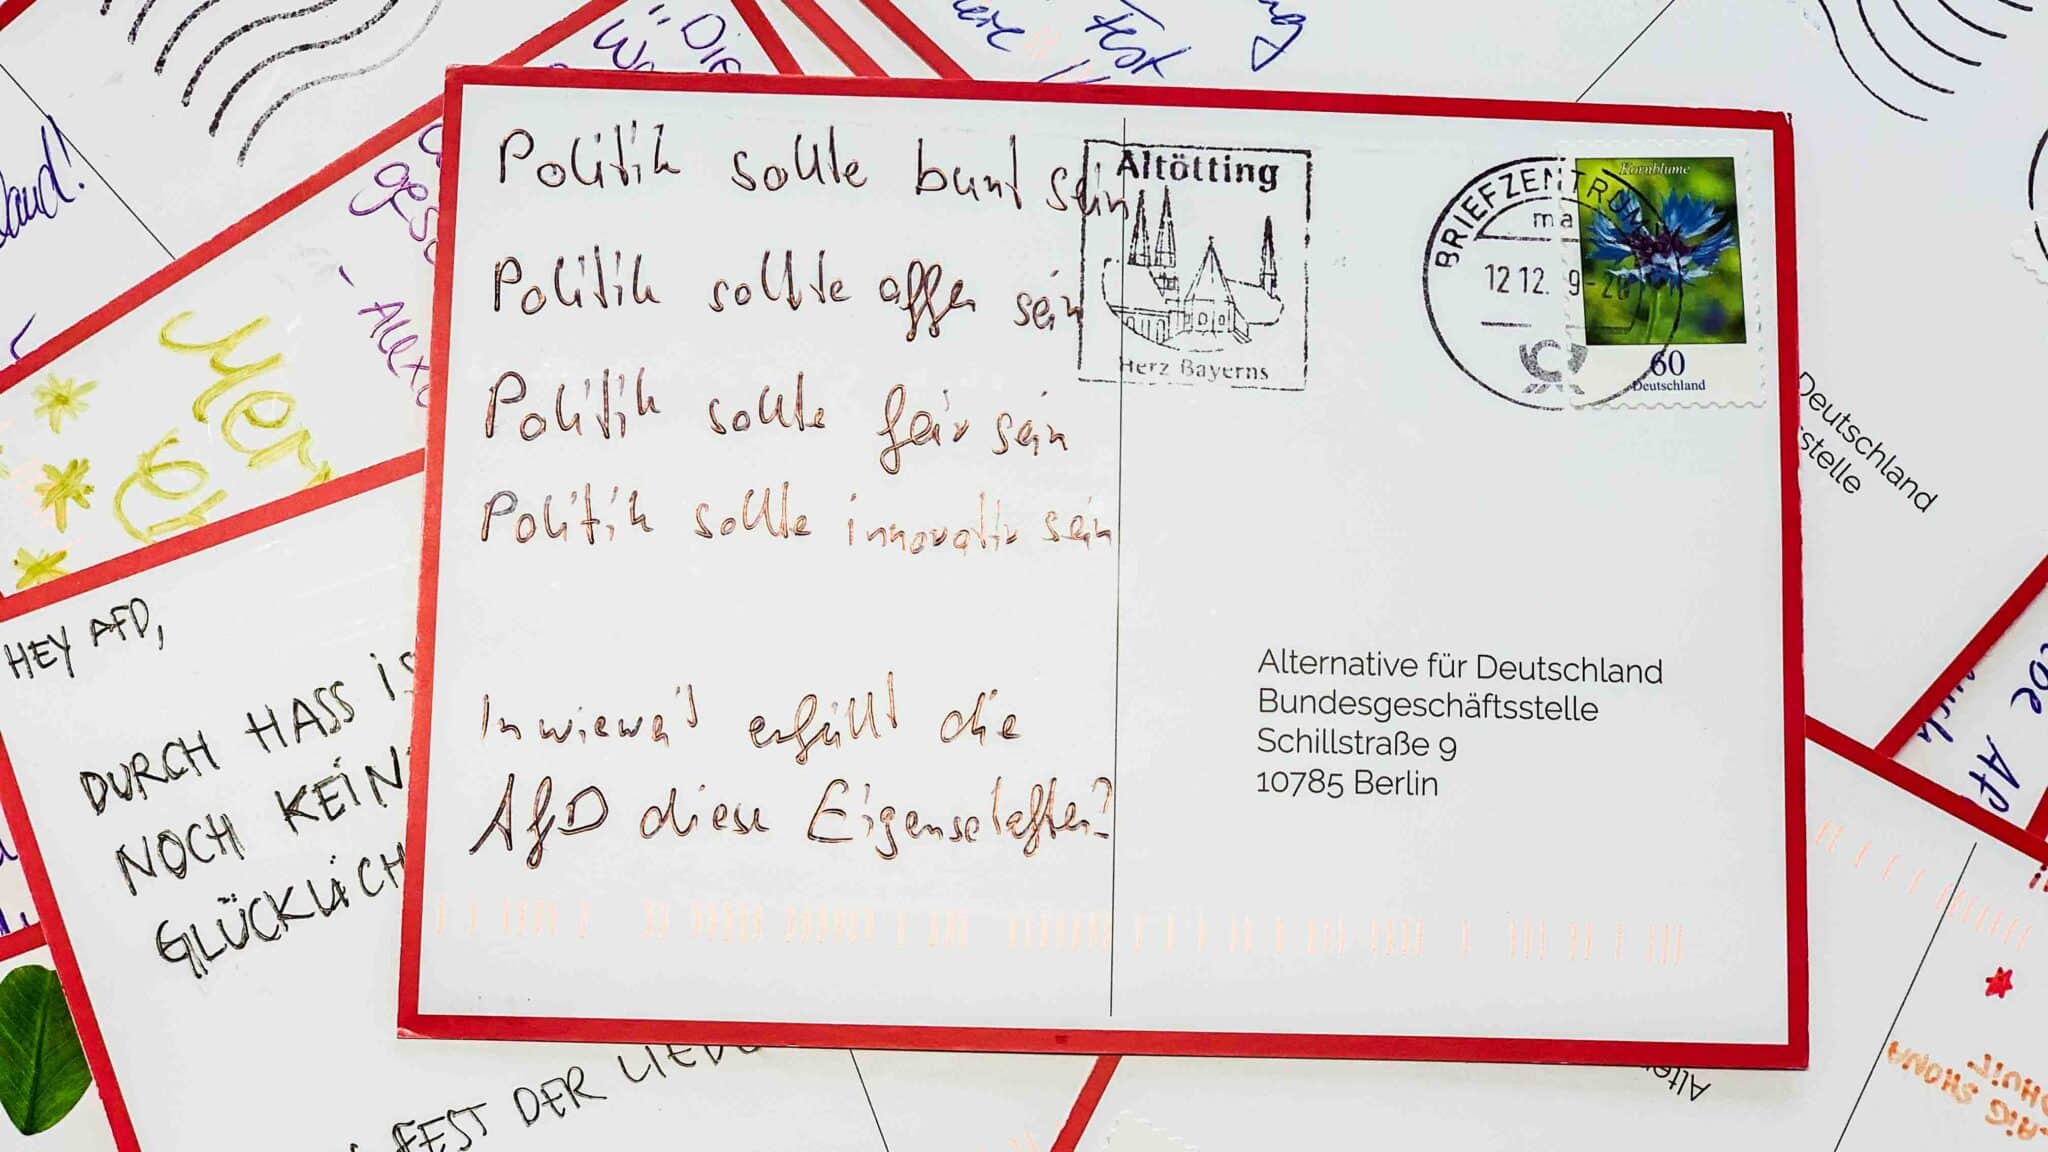 Politik sollte bunt sein
Politik sollte offen sein
Politik sollte fair sein
Politik sollte innovativ sein
Inwieweit erfüllt die
AfD diese Eigenschaften?
Altötting
Herz Bayerns
BRIEFZENTRUM
12 12.
Kornblume
60
Deutschland
Alternative für Deutschland
Bundesgeschäftsstelle
Schillstraße 9
10785 Berlin
HEY AFD,
DURCH HASS IS
NOCH KEIN
GLÜCKLICH
FEST DER LIEBE
"Die
gesc
- Alex
Mer
Fest
Deutschland
sstelle
Alter